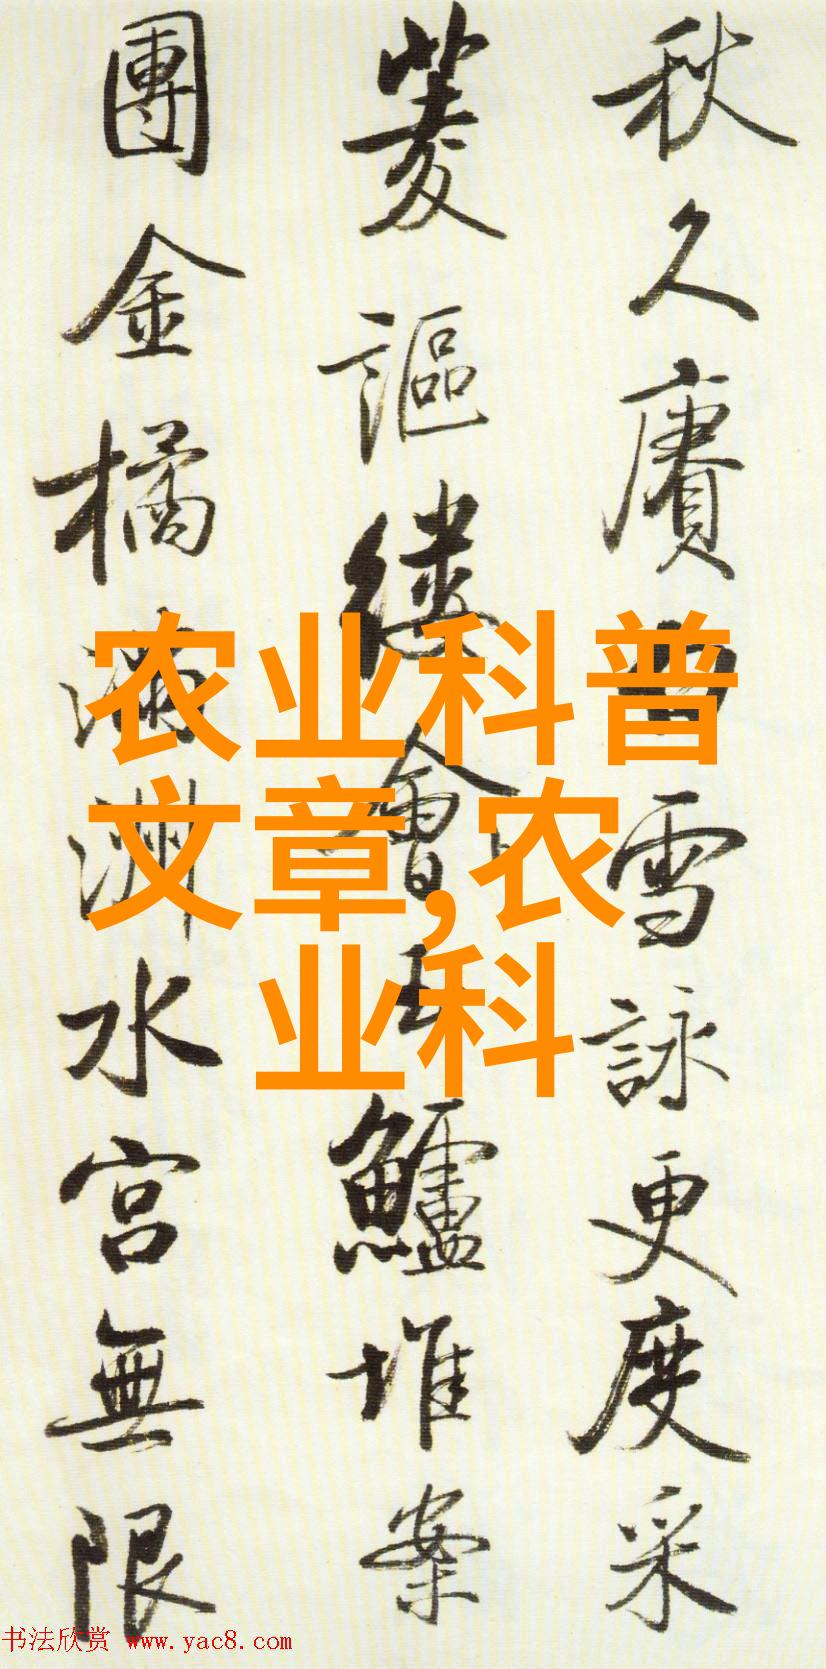 秋久賡白雪詠更度采
菱謳縷會玉鱸堆案
團金橘滿洲水宮無限
农业科普
文章,农
业科
书法欣赏 www.yac8.com